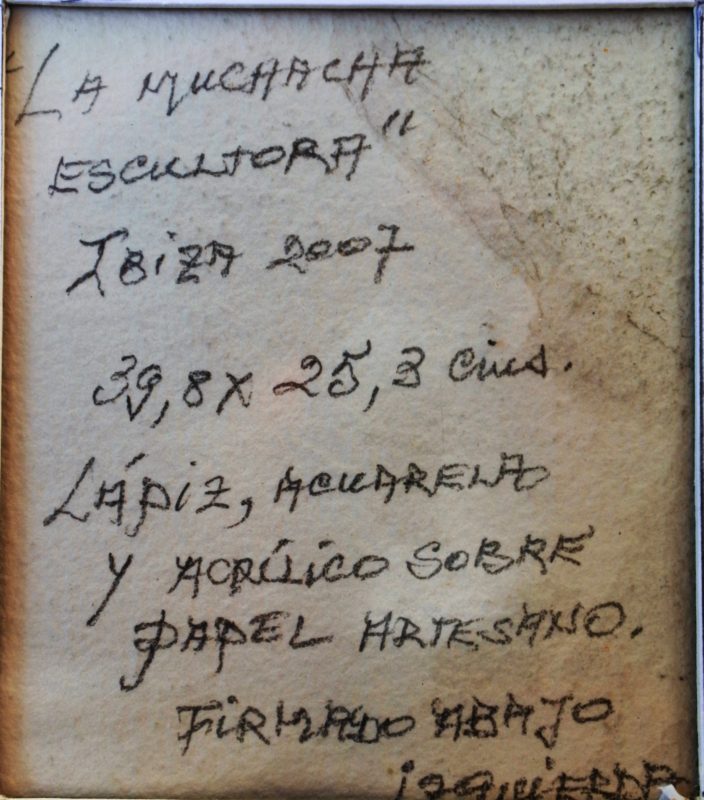 "LA MUCHACHA
ESCULTORA"
IBIZA 2007
39,8 X 25,3 cms.
LÁPIZ, ACUARELA
Y ACRÍLICO SOBRE
PAPEL ARTESANO.
FIRMADO ABAJO
IZQUIERDA